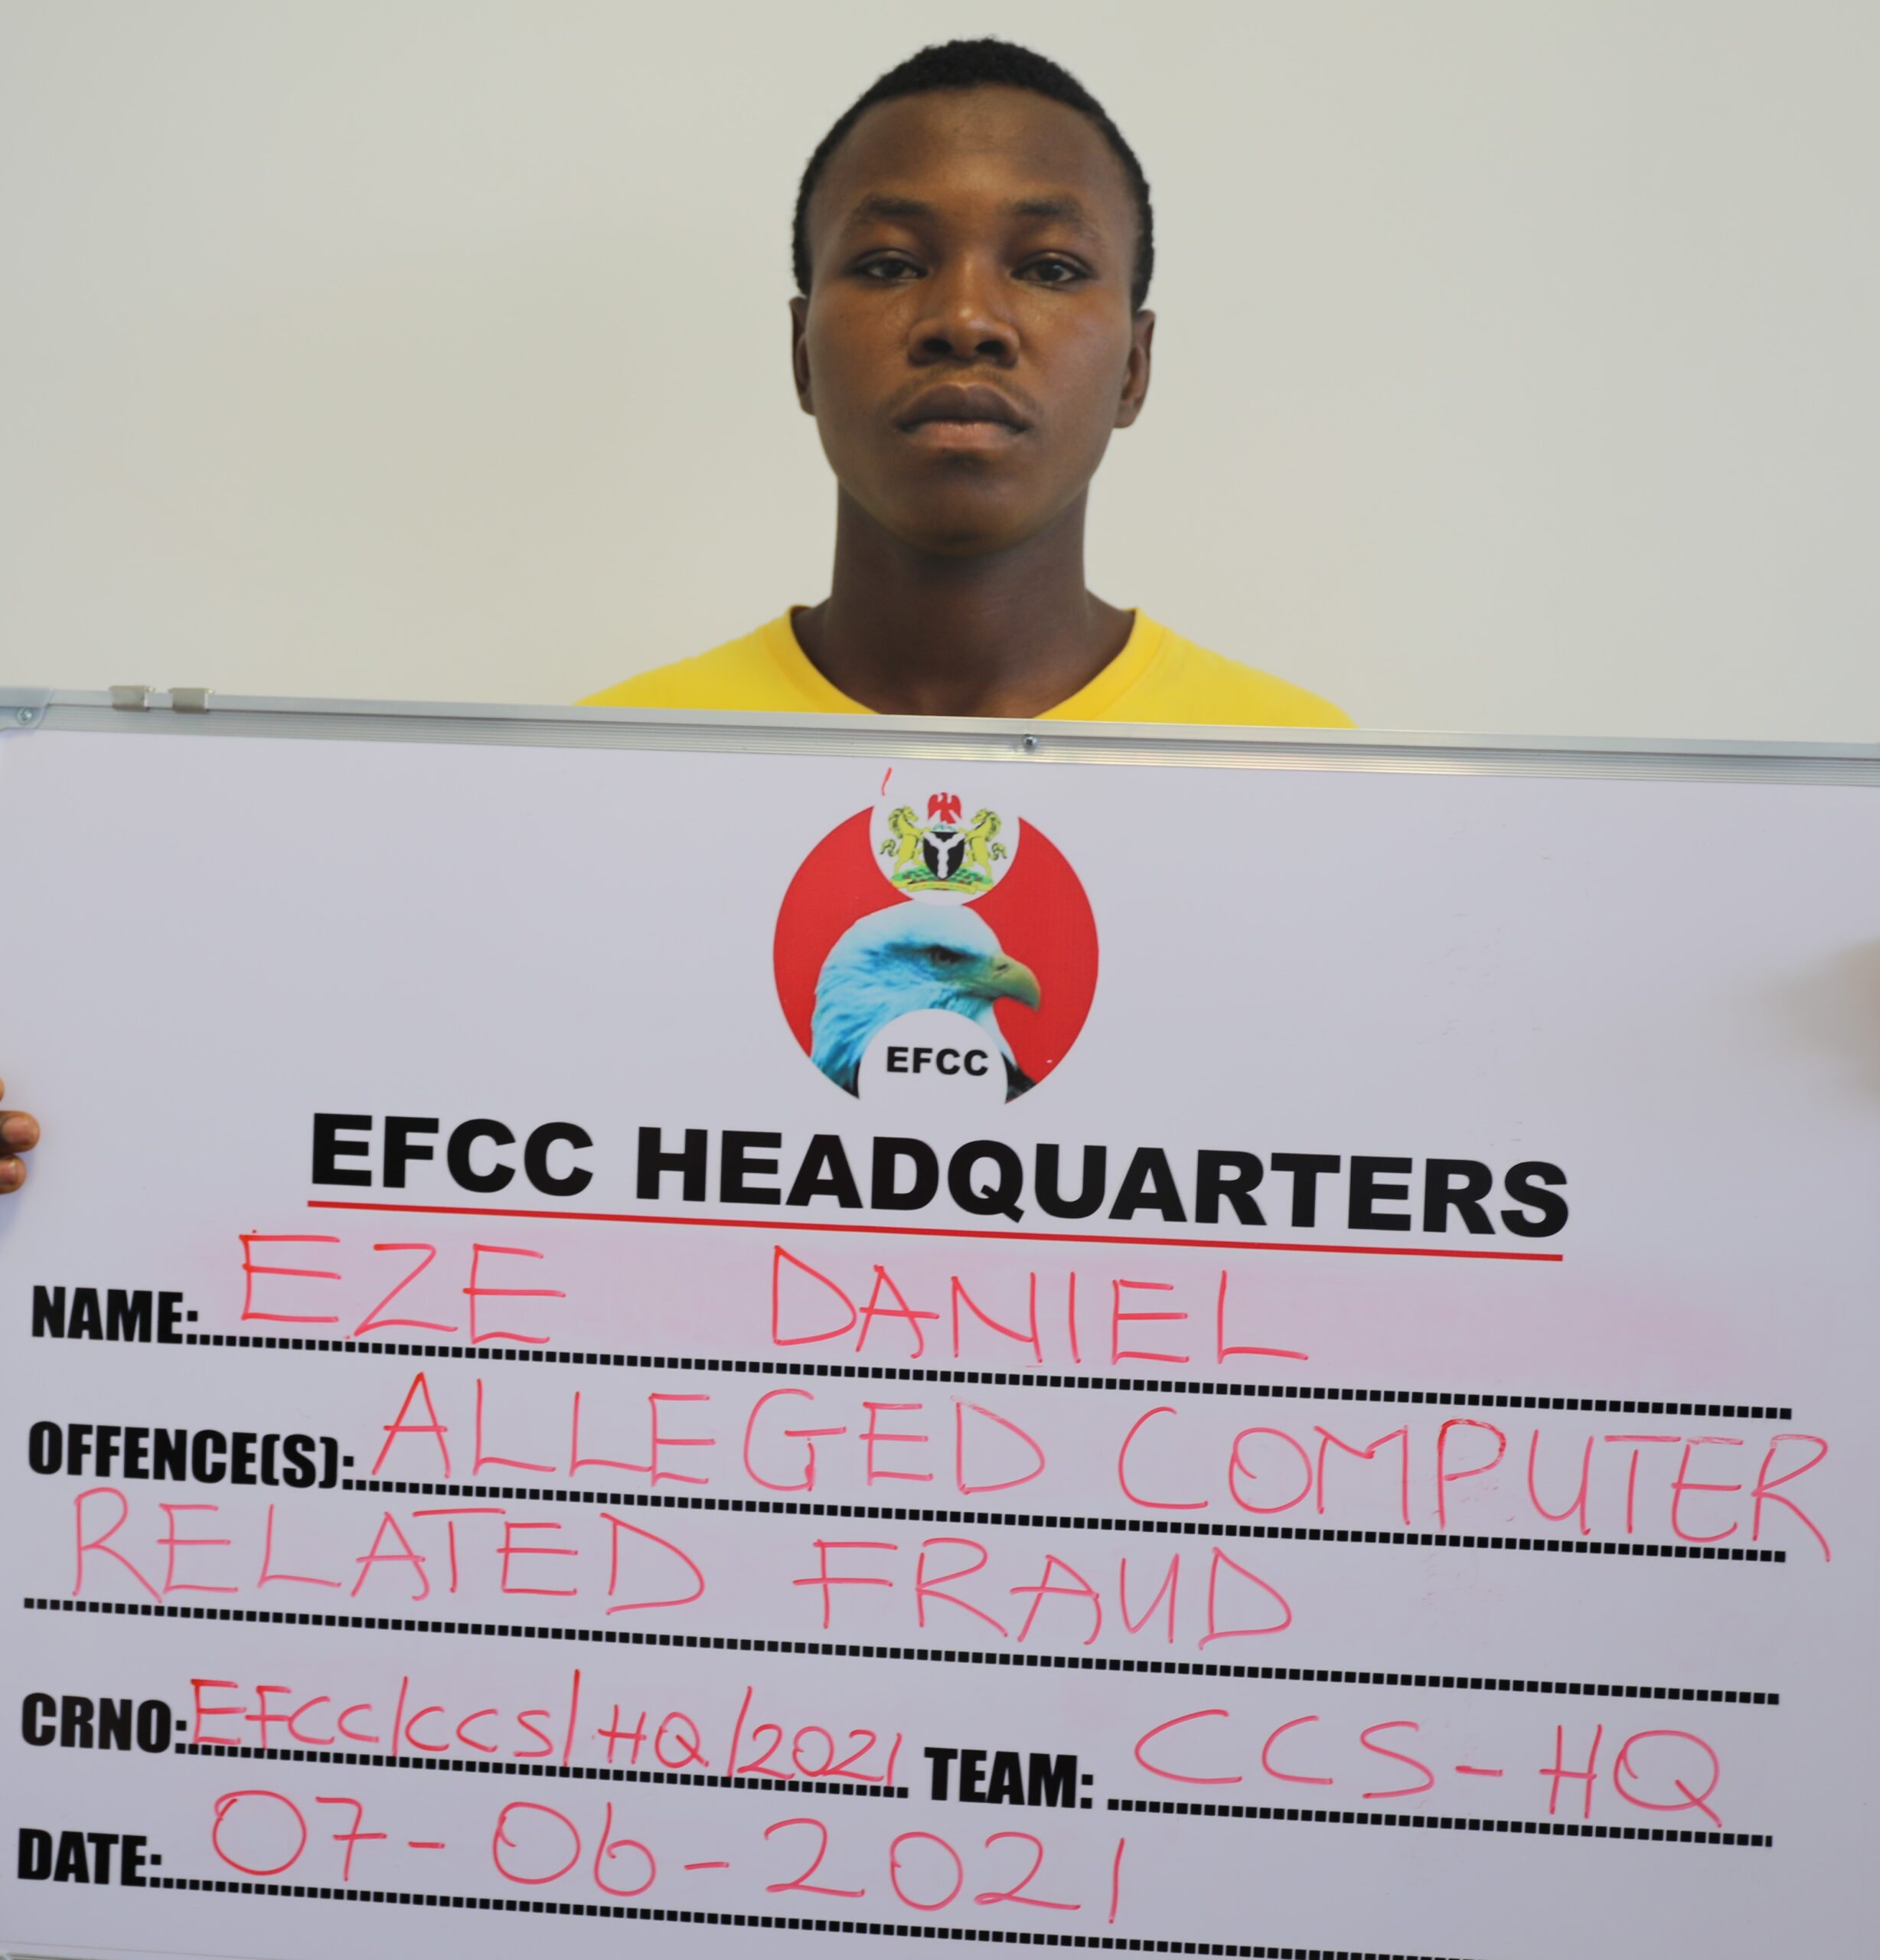 EFCC
EFCC HEADQUARTERS
NAME: EZE DANIEL
OFFENCE(S): ALLEGED COMPUTER
RELATED FRAUD
CRNO: EFCC/CCS/HQ/2021 TEAM: CCS-HQ
DATE: 07-06-2021